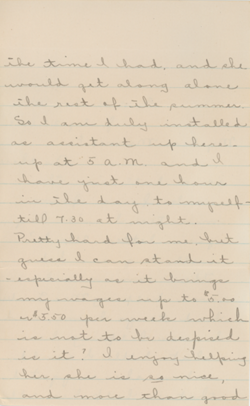 the time I had, and she
would get along alone
the rest of the summer.
So I am duly installed
as assistant up here-
up at 5 A.M. and I
have just one hour
in the day to myself-
till 7.30 at night.
Pretty hard for me, but
guess I can stand it
- especially as it brings
my wages up to $5.00
or $5.50 per week which
is not to be despised
is it! I enjoy helping
her, she is so nice,
and more than good